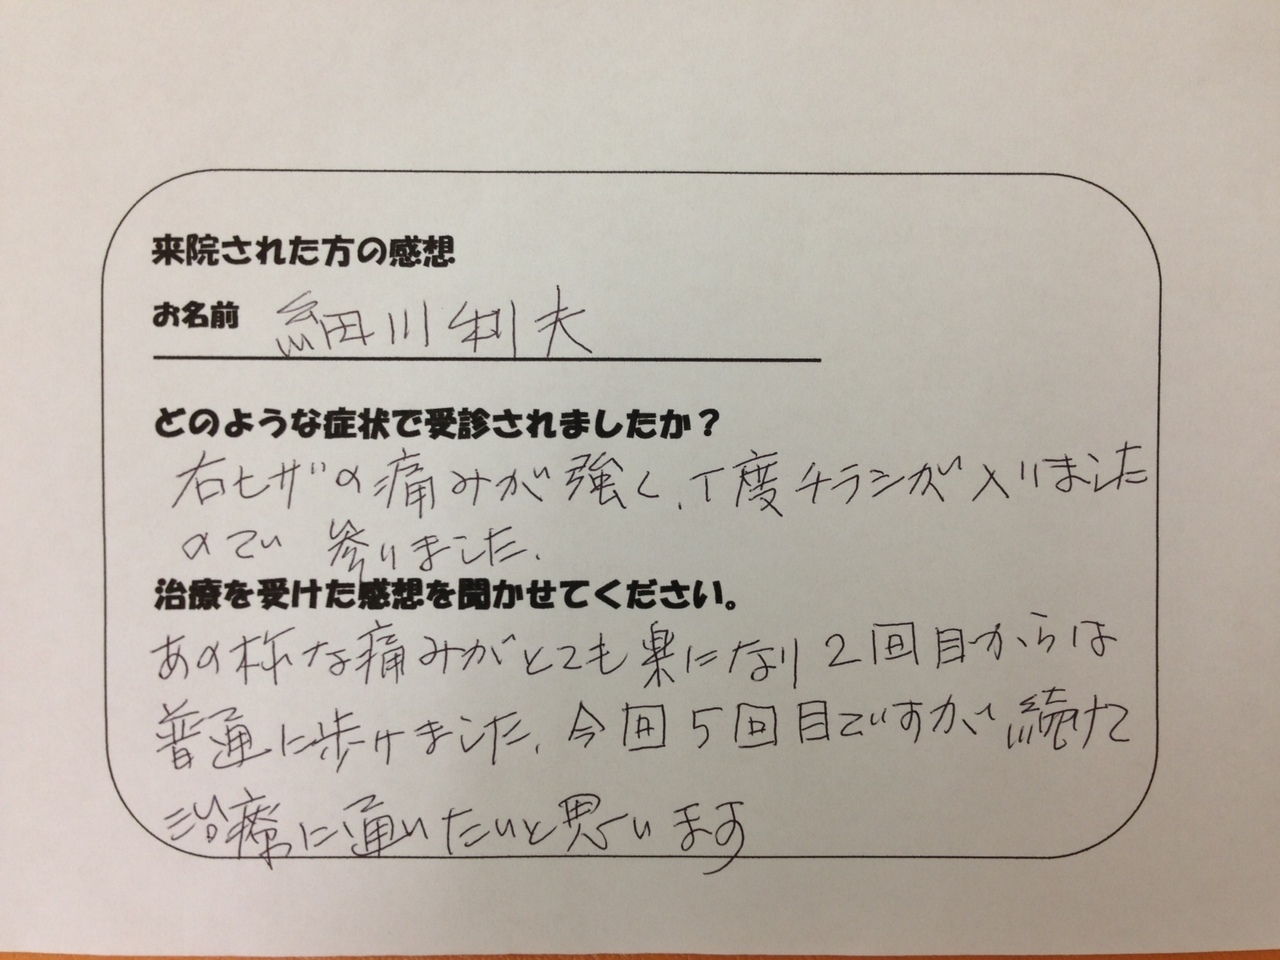 来院された方の感想
お名前 細川利夫
どのような症状で受診されましたか？
右ヒザの痛みが強く、丁度チラシが入りました
ので 参りました。
治療を受けた感想を聞かせてください。
あの様な痛みがとても楽になり２回目からは
普通に歩けました、今回５回目ですが続けて
治療に通いたいと思います